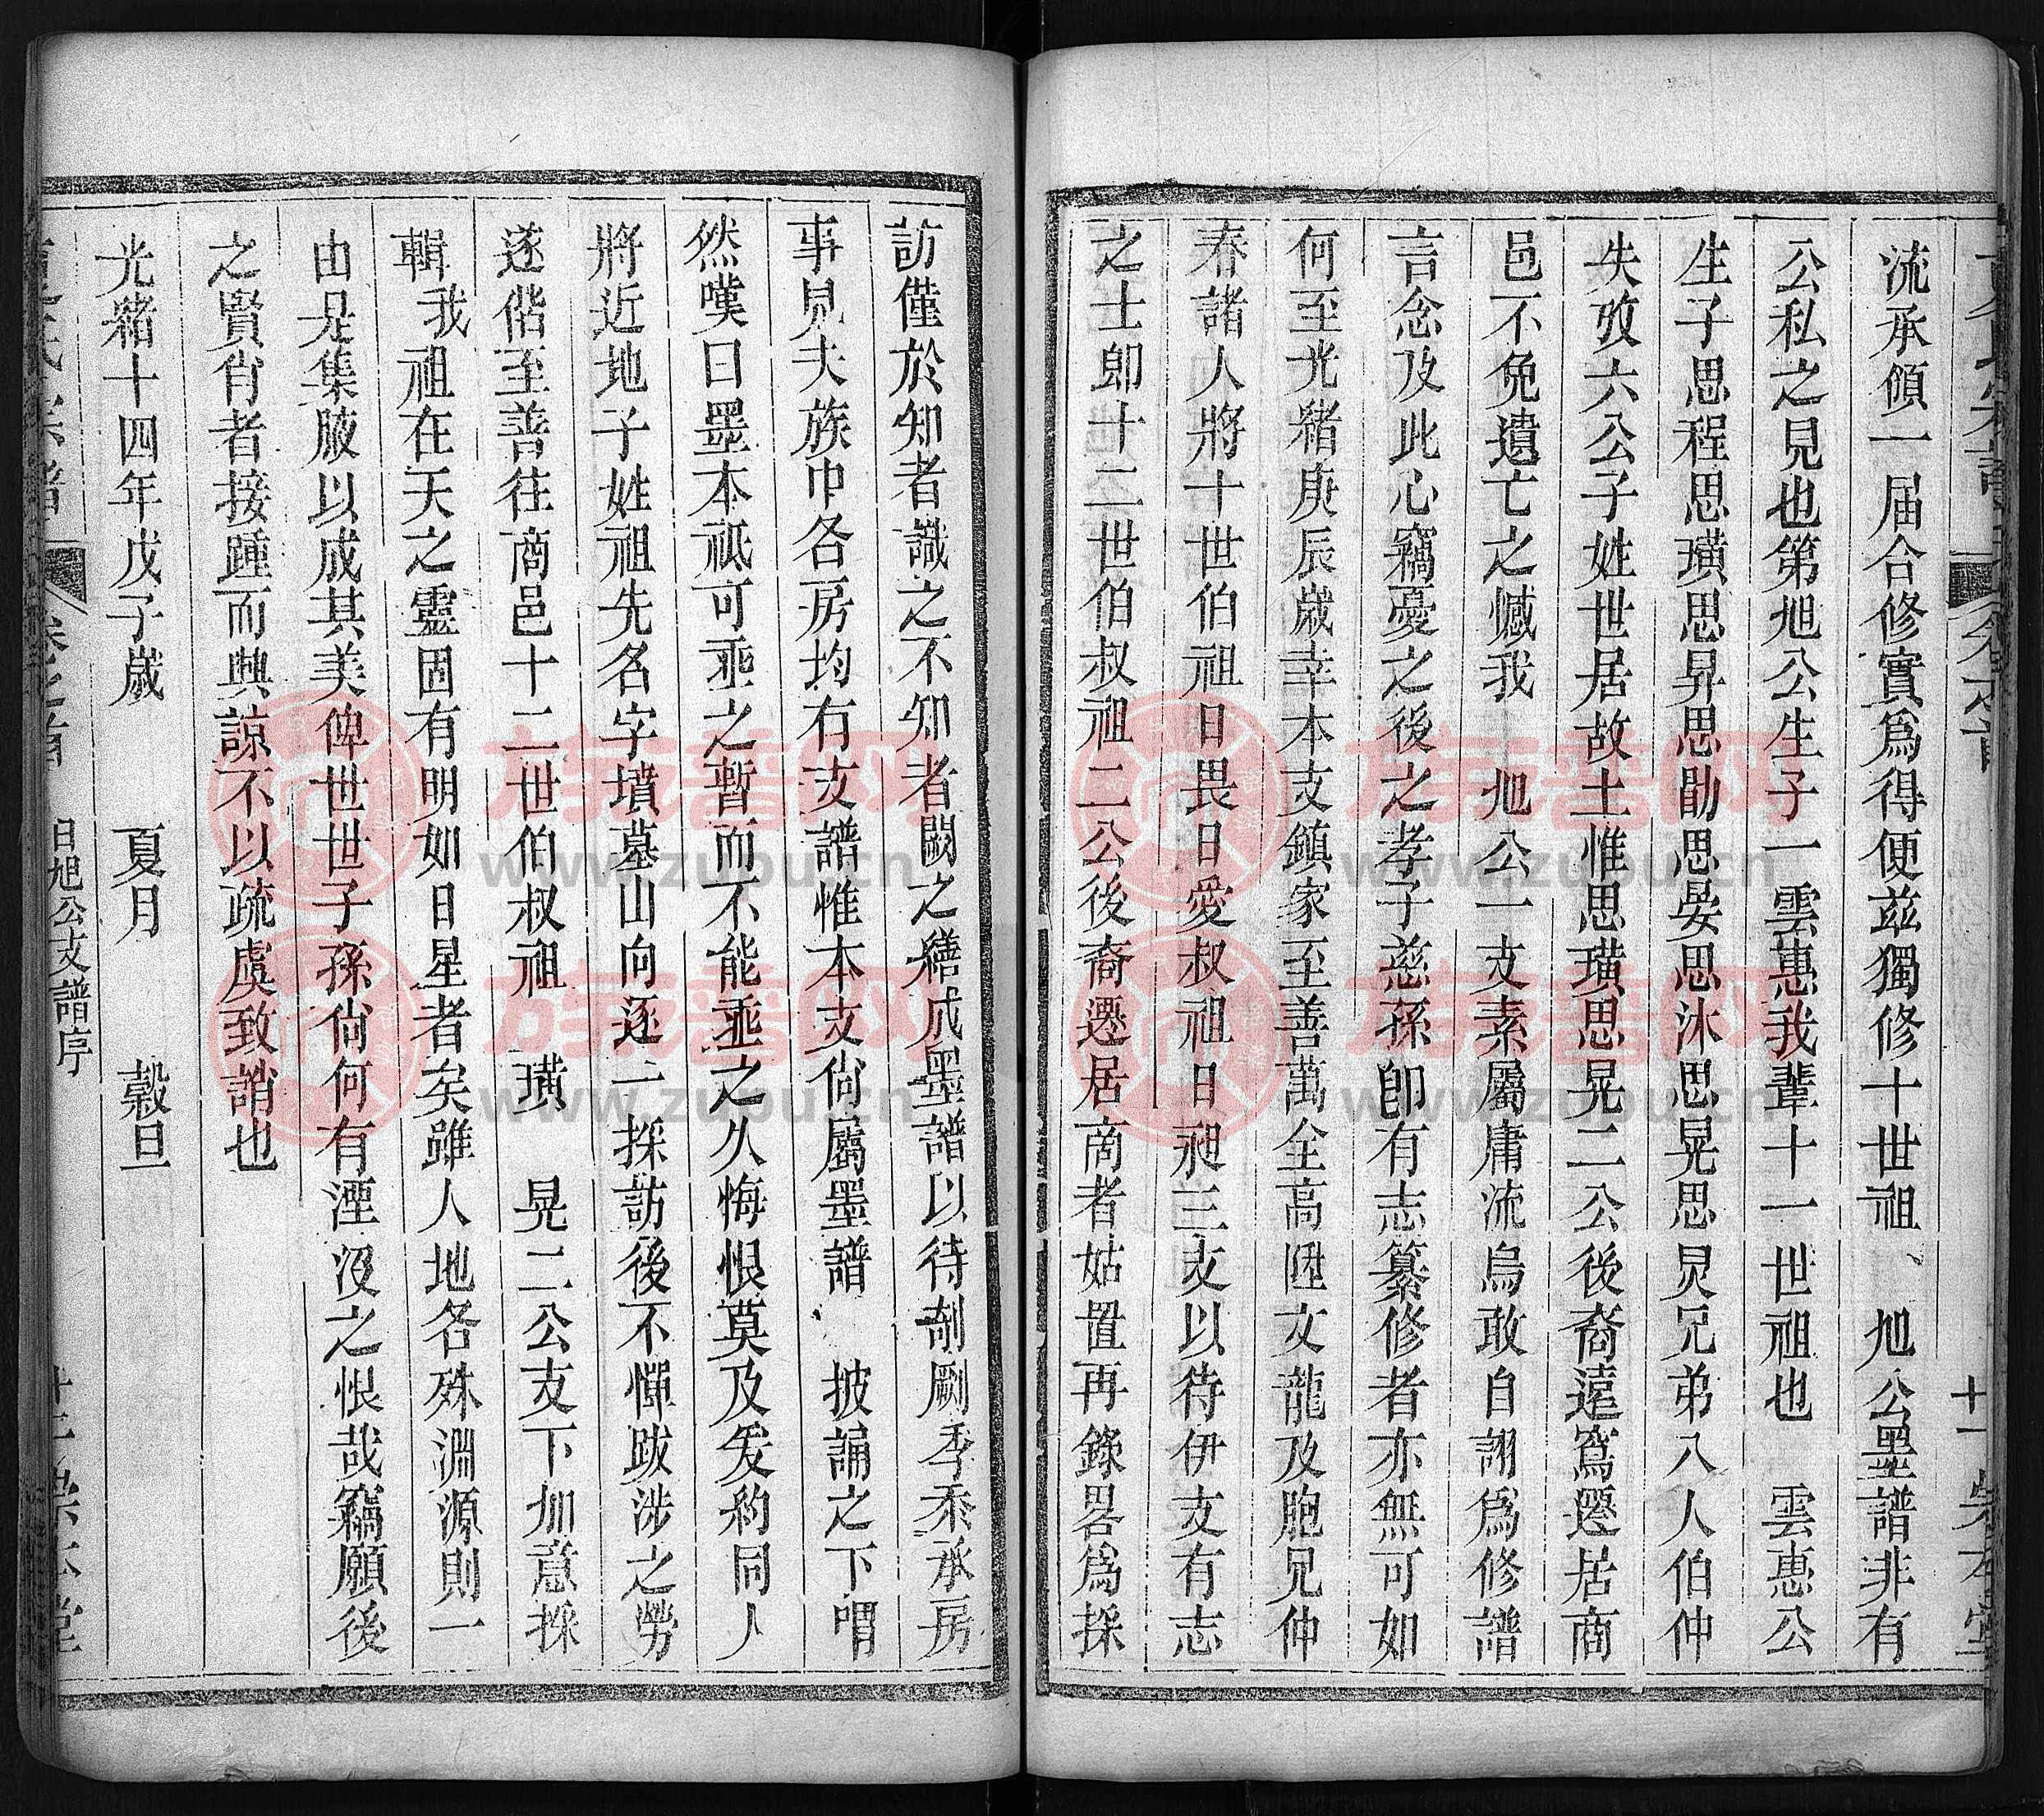 流承傾一届合修實爲得便茲獨修十世祖、旭公墨譜非有
公私之見也第旭公生子一雲惠我輩十一世祖也 雲惠公
生子思程思璜思昇思勛思晏思沐思晃思炅兄弟八人伯仲
失攷六公子姓世居故土惟思璜思晃二公後裔遠窵遷居商
邑不免遺亡之憾我 旭公一支素屬庸流烏敢自詡爲修譜
言念及此心竊憂之後之孝子慈孫卽有志纂修者亦無可如
何至光緒庚辰歲幸本支鎮家至善萬全高陞文龍及胞兄仲
春諸人將十世伯祖日畏日愛叔祖日昶三支以待伊支有志
之士卽十二世伯叔祖二公後裔遷居商者姑置再錄畧爲採
訪僅於知者識之不知者闕之繕成墨譜以待剞劂季黍承房
事見夫族中各房均有支譜惟本支尙屬墨譜 披誦之下喟
然嘆曰墨本祗可垂之暫而不能垂之久悔恨莫及爰約同人
將近地子姓祖先名字墳墓山向逐一採訪後不憚跋涉之勞
遂偕至善往商邑十二世伯叔祖 璜 晃二公支下加意採
輯我祖在天之靈固有明如日星者矣雖人地各殊淵源則一
由是集腋以成其美俾世世子孫尙何有湮沒之恨哉竊願後
之賢肖者接踵而興諒不以疏虞致誚也
光緒十四年戊子歲 夏月 穀旦
氏宗譜 卷之首 日旭公支譜序 十二 崇本堂